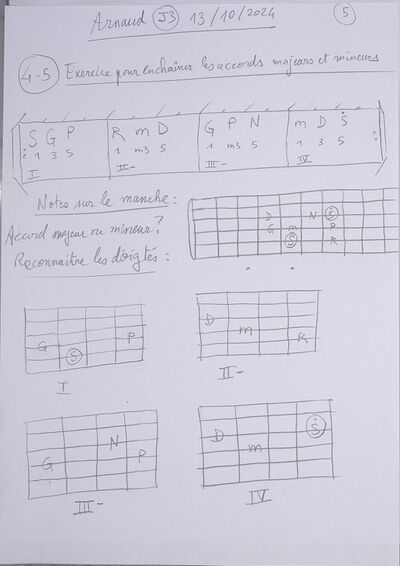 Arnaud J3 13/10/2024 5
4-5 Exercice pour enchaîner les accords majeurs et mineurs
S G P R m D G P N m D S
1 3 5 1 m3 5 1 m3 5 1 3 5
I II- III- IV
Notes sur le manche :
D N S
G m P
S R
Accord majeur ou mineur ?
Reconnaître les doigtés :
G S P
D m R
I II-
G N P
D m S
III- IV